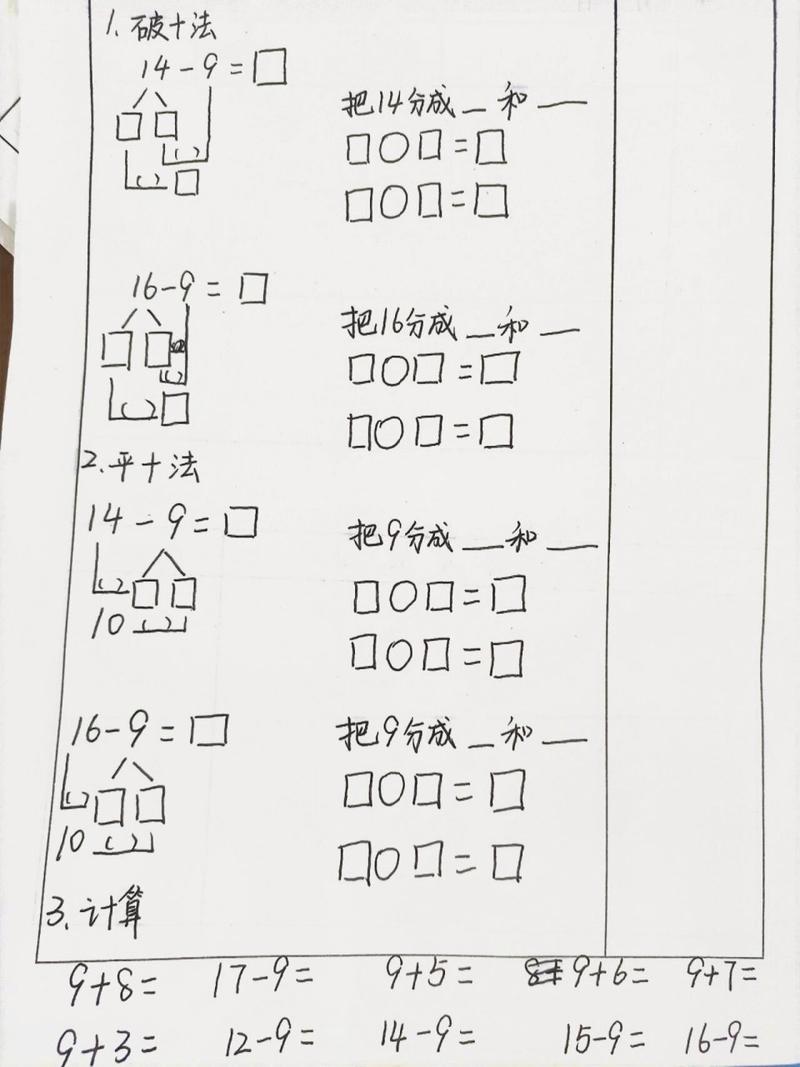 1. 破十法
14－9＝□
把14分成＿和＿
□□
□○□＝□
( )
( )□
□○□＝□
16－9＝□
把16分成＿和＿
□□
□○□＝□
( )
( )□
□○□＝□
2. 平十法
14－9＝□
把9分成＿和＿
( )□□
□○□＝□
10( )
□○□＝□
16－9＝□
把9分成＿和＿
( )□□
□○□＝□
10( )
□○□＝□
3. 计算
9+8= 17-9= 9+5= 9+6= 9+7=
9+3= 12-9= 14-9= 15-9= 16-9=